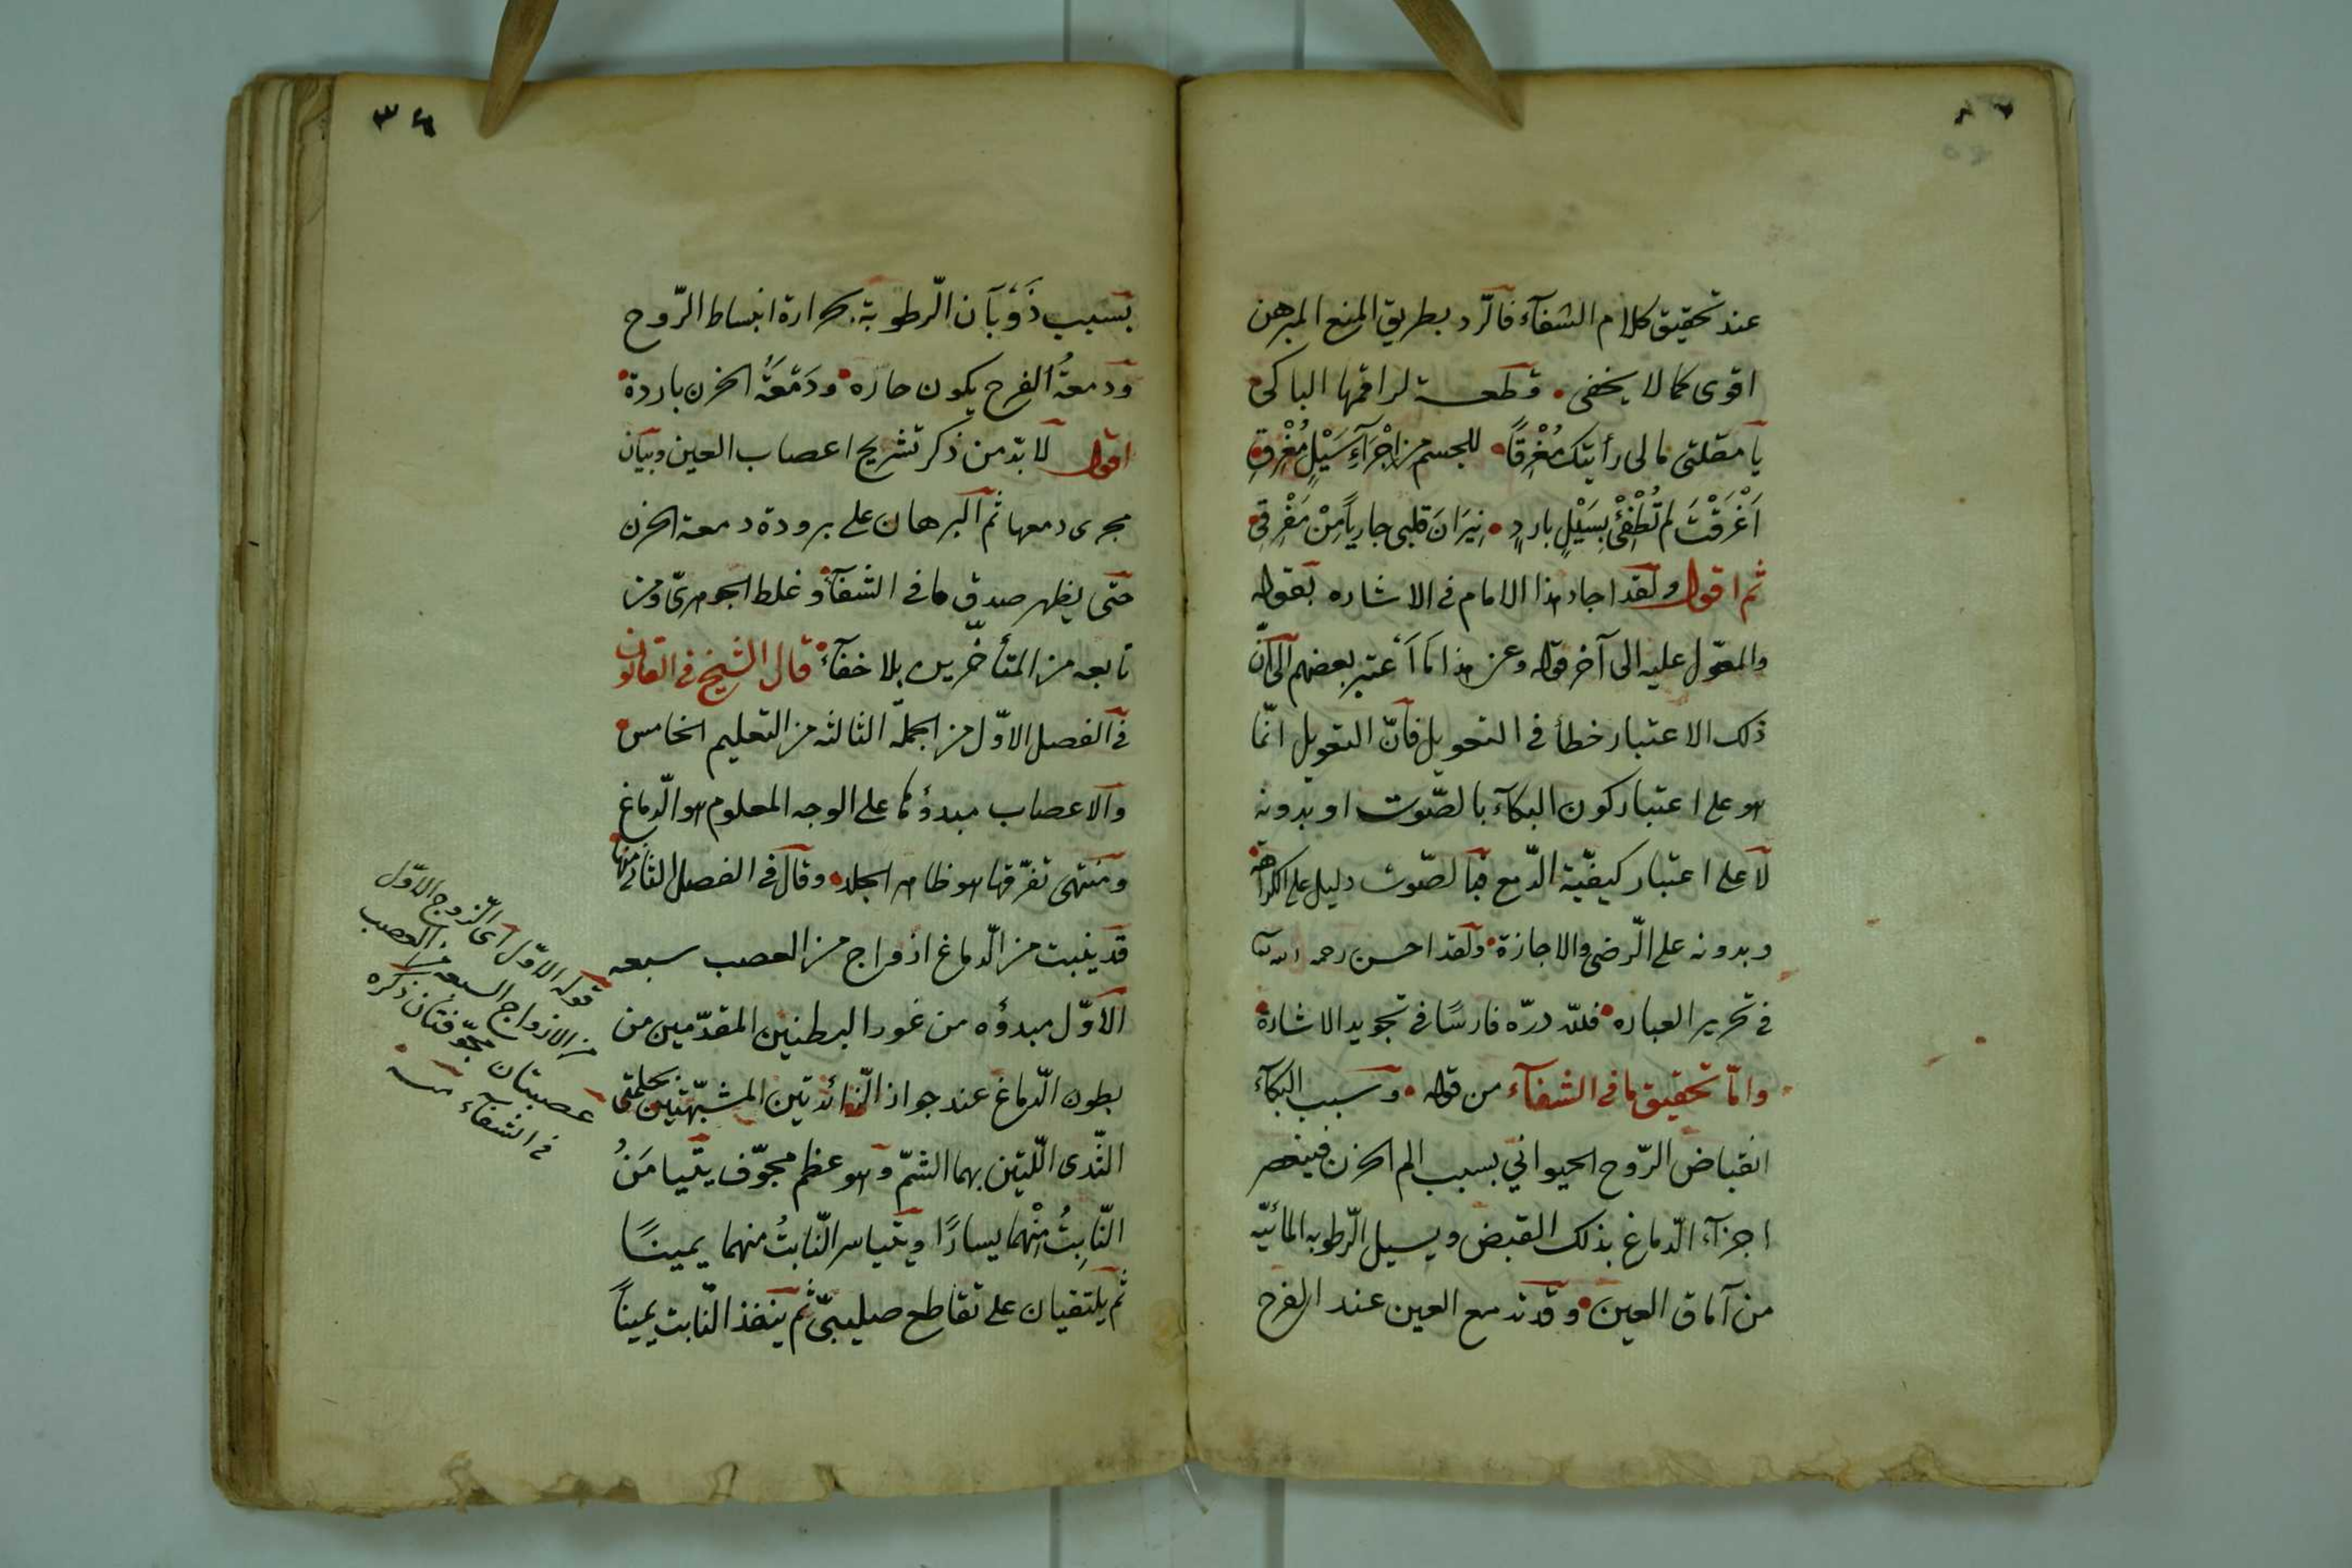 عند تحقيق كلام الشفآء فالرّد بطريق المنع المبرهن
اقوى كما لا يخفى • قطعـــة لراقمها الباكى
يا مقلتى مالى رأيتك مُغْرِقًا • للجسم من اِجْرَآءِ سَيْلٍ مُغْرِقِ
اَغْرَقْتَ لم تُطْفِئْ بِسَيْلٍ باردٍ • نِيَرانَ قلبى جارياً مِنْ مَفْرِقى
ثم اقول ولقد اجاد هذا الامام فى الاشاره بقوله
والمعوّل عليه الى آخر قوله وعن هذا ما اَعتبر بعضهم الى انّ
ذلك الاعتبار خطأ فى التحويل فانّ التعويل انّما
هو على اعتبار كون البكآء بالصّوت او بدونه
لا على اعتبار كيفيّة الدّمع فبالصّوت دليل على الكراهة
وبدونه على الرّضى والاجازة • ولقد احسن رحمه الله
فى تحرير العباره • فللّه درّه فارسًا فى تجويد الاشارة
وامّا تحقيق ما فى الشفآء من قوله • وسبب البكآء
انقباض الرّوح الحيواني بسبب الم الحزن فينعصر
اجزآء الدّماغ بذلك القبض ويسيل الرّطوبه المائيّه
من آماق العين • وقد تدمع العين عند الفرح
٣٤
بسبب ذَوَبَان الرّطوبة بحرارة انبساط الرّوح
ودمعةُ الفرح يكون حاره • ودَمْعَةُ الحزن باردة •
اقول لا بدّ من ذكر تشريح اعصاب العين وبيان
مجرى دمعها ثم البرهان على برودة دمعة الحزن
حتى يظهر صدق ما فى الشفآء وغلط الجوهرىّ ومن
تابعه من المتأخّرين بلا خفآء • قال الشيخ فى القانون
فى الفصل الاوّل من الجملة الثالثه من التعليم الخامس •
والاعصاب مبدؤها على الوجه المعلوم هو الدّماغ
ومنتهى تفرّقها هو ظاهر الجلد • وقال فى الفصل الثانى منها
قد ينبت من الدّماغ ازواج من العصب سبعه
الاوّل مبدؤه من غور البطنين المقدّمين من
بطون الدّماغ عند جواز الزّائدتين المشبّهتين بحلمتى
الثّدى اللّتين بهما الشمّ وهو عظم مجوّف يتيامَنُ
النّابِتُ مِنْهما يسارًا ويتياسر النّابتُ منهما يمينًا
ثم يلتقيان على تقاطع صليبىّ ثم ينفذ النّابت يمينًا
قوله الاوّل اى الزّوج الاوّل
من الازواج السبعه من العصب
عصبتان مجوّفتان ذكره
فى الشفآء منه